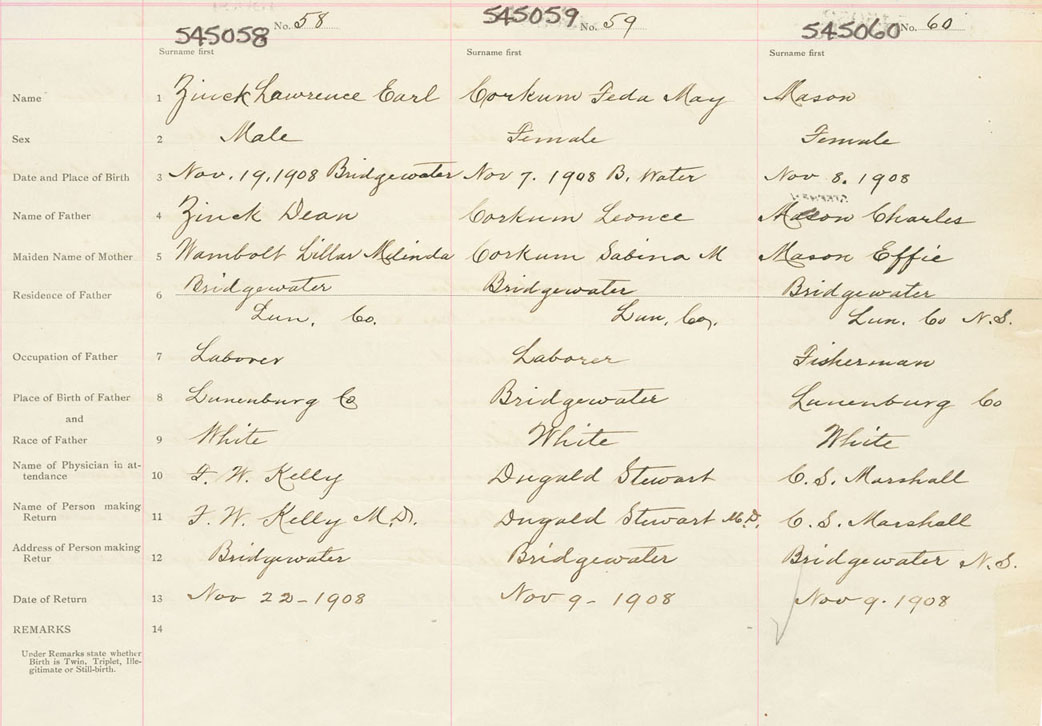 545058 No. 58 545059 No. 59 545060 No. 60
Surname first Surname first Surname first
Name 1 Zinck Lawrence Earl Corkum Feda May Mason
Sex 2 Male Female Female
Date and Place of Birth 3 Nov. 19, 1908 Bridgewater Nov 7. 1908 B. Water Nov 8. 1908
Name of Father 4 Zinck Dean Corkum Leonce Mason Charles
Maiden Name of Mother 5 Wambolt Lillar Melinda Corkum Sabina M Mason Effie
Residence of Father 6 Bridgewater Bridgewater Bridgewater
Lun. Co. Lun, Co, Lun. Co N.S.
Occupation of Father 7 Laborer Laborer Fisherman
Place of Birth of Father 8 Lunenburg Co Bridgewater Lunenburg Co
and
Race of Father 9 White White White
Name of Physician in at-
tendance 10 F. W. Kelly Dugald Stewart C. S. Marshall
Name of Person making
Return 11 F. W. Kelly M.D. Dugald Stewart M.D. C. S. Marshall
Address of Person making
Retur 12 Bridgewater Bridgewater Bridgewater N.S.
Date of Return 13 Nov 22-1908 Nov 9- 1908 Nov 9. 1908
REMARKS 14
Under Remarks state whether
Birth is Twin, Triplet, Ille-
gitimate or Still-birth.